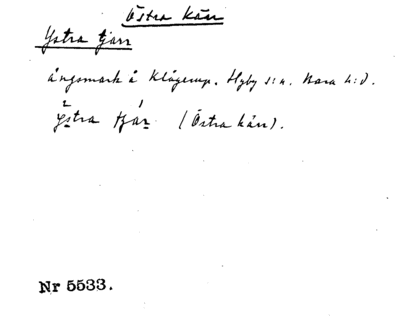 Östra kärr
Ystra tjarr
ängsmark å Klågerup. Hyby s:n. Bara h:d.
ÿstra tjár (Östra kärr).
Nr 5533.